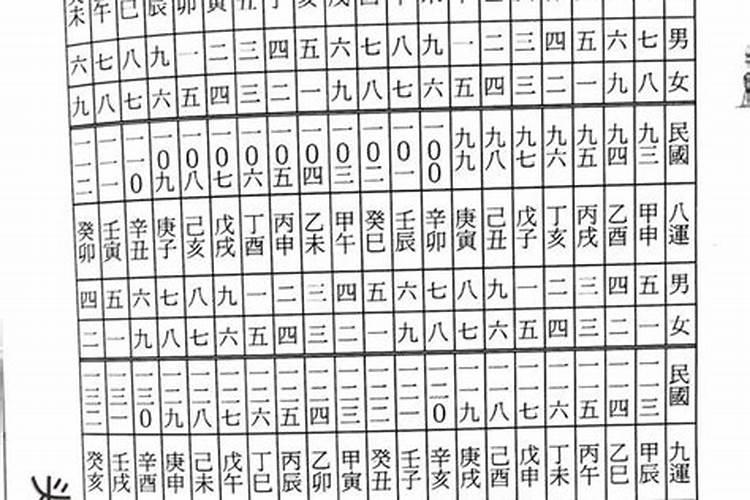 寅 卯 辰 巳 午 未
男 七 六 五 四 三 二 一 九 八 七 六 五 四 三 二 一 九 八 七 六
女 八 九 一 二 三 四 五 六 七 八 九 一 二 三 四 五 六 七 八 九
民國 九三 九四 九五 九六 九七 九八 九九 一00 一0一 一0二 一0三 一0四 一0五 一0六 一0七 一0八 一0九 一一0 一一一 一一二
八運 甲申 乙酉 丙戌 丁亥 戊子 己丑 庚寅 辛卯 壬辰 癸巳 甲午 乙未 丙申 丁酉 戊戌 己亥 庚子 辛丑 壬寅 癸卯
男 五 四 三 二 一 九 八 七 六 五 四 三 二 一 九 八 七 六 五 四
女 一 二 三 四 五 六 七 八 九 一 二 三 四 五 六 七 八 九 一 二
民國 一一三 一一四 一一五 一一六 一一七 一一八 一一九 一二0 一二一 一二二 一二三 一二四 一二五 一二六 一二七 一二八 一二九 一三0 一三一 一三二
九運 甲辰 乙巳 丙午 丁未 戊申 己酉 庚戌 辛亥 壬子 癸丑 甲寅 乙卯 丙辰 丁巳 戊午 己未 庚申 辛酉 壬戌 癸亥